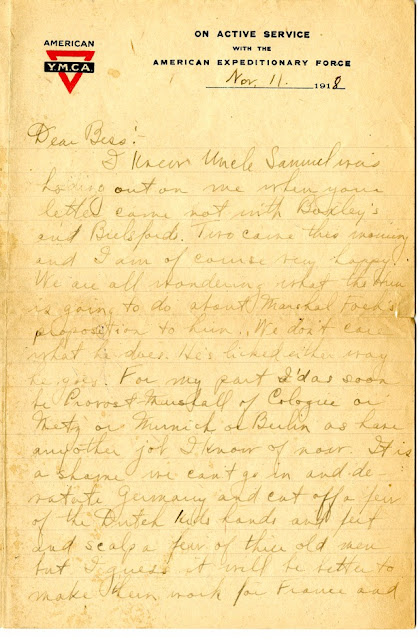 AMERICAN
YMCA
ON ACTIVE SERVICE
WITH THE
AMERICAN EXPEDITIONARY FORCE
Nov. 11. 1918
Dear Bess:-
I knew Uncle Samuel was
holding out on me when your
letter came not with Boxley's
and Bielsfords. Two came this morning
and I am of course very happy.
We are all wondering what the Hun
is going to do about Marshal Foch's
proposition to him. We don't care
what he does. He's licked either way
he goes. For my part I'd as soon
be Provost Marshall of Cologne or
Metz or Munich or Berlin as have
any other job I know of now. It is
a shame we can't go in and de-
vastate Germany and cut off a few
of the Dutch kids hands and feet
and scalp a few of their old men
but I guess it will be better to
make them work for France and